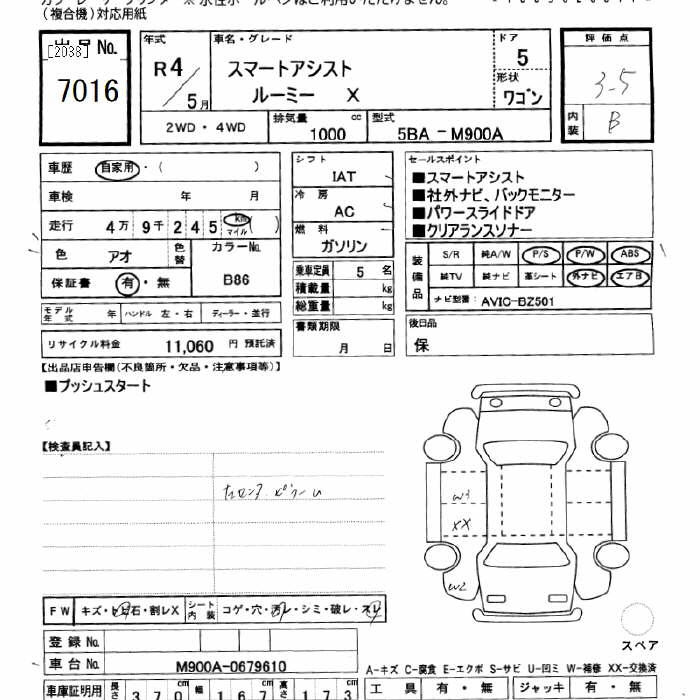 (複合機)対応用紙
出品No. [2038]
7016
年式
R4/5月
車名・グレード
スマートアシスト
ルーミー X
ドア
5
形状
ワゴン
評価点
3.5
内装 B
2WD・4WD
排気量 1000 cc
型式 5BA-M900A
車歴 自家用・( )
車検 年 月
走行 4万9千245 km マイル ( )
色 アオ
色替
カラーNo.
B86
保証書 有・無
モデル年式 年 ハンドル 左・右 ディーラー・並行
リサイクル料金 11,060 円 預託済
シフト
IAT
冷房
AC
燃料
ガソリン
乗車定員 5 名
積載量 kg
総重量 kg
書類期限
月 日
セールスポイント
■スマートアシスト
■社外ナビ、バックモニター
■パワースライドドア
■クリアランスソナー
装備品
S/R 純A/W P/S P/W ABS
純TV 純ナビ 革シート 外ナビ エアB
ナビ型番: AVIC-BZ501
後日品
保
【出品店申告欄(不良箇所・欠品・注意事項等)】
■プッシュスタート
【検査員記入】
W3
XX
W2
FW キズ・ヒビ・石・割レX
シート内装 コゲ・穴・汚レ・シミ・破レ・スレ
登録No.
車台No. M900A-0679610
スペア
A-キズ C-腐食 E-エクボ S-サビ U-凹ミ W-補修 XX-交換済
車庫証明用 長さ 370cm 幅 167cm 高さ 173cm
工具 有・無 ジャッキ 有・無